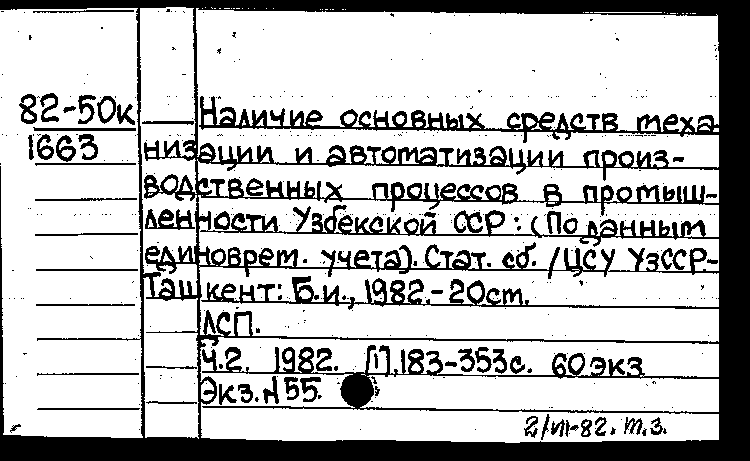 82-50к
1663
Наличие основных средств меха-
низации и автоматизации произ-
водственных процессов в промыш-
ленности Узбекской ССР: (По данным
единоврем. учета). Стат. сб. /ЦСУ УзССР.-
Ташкент: Б.и., 1982.-20см.
ДСП.
Ч.2. 1982. [1], 183-353с. 60 экз
Экз. №55.
2/VII-82. т.з.